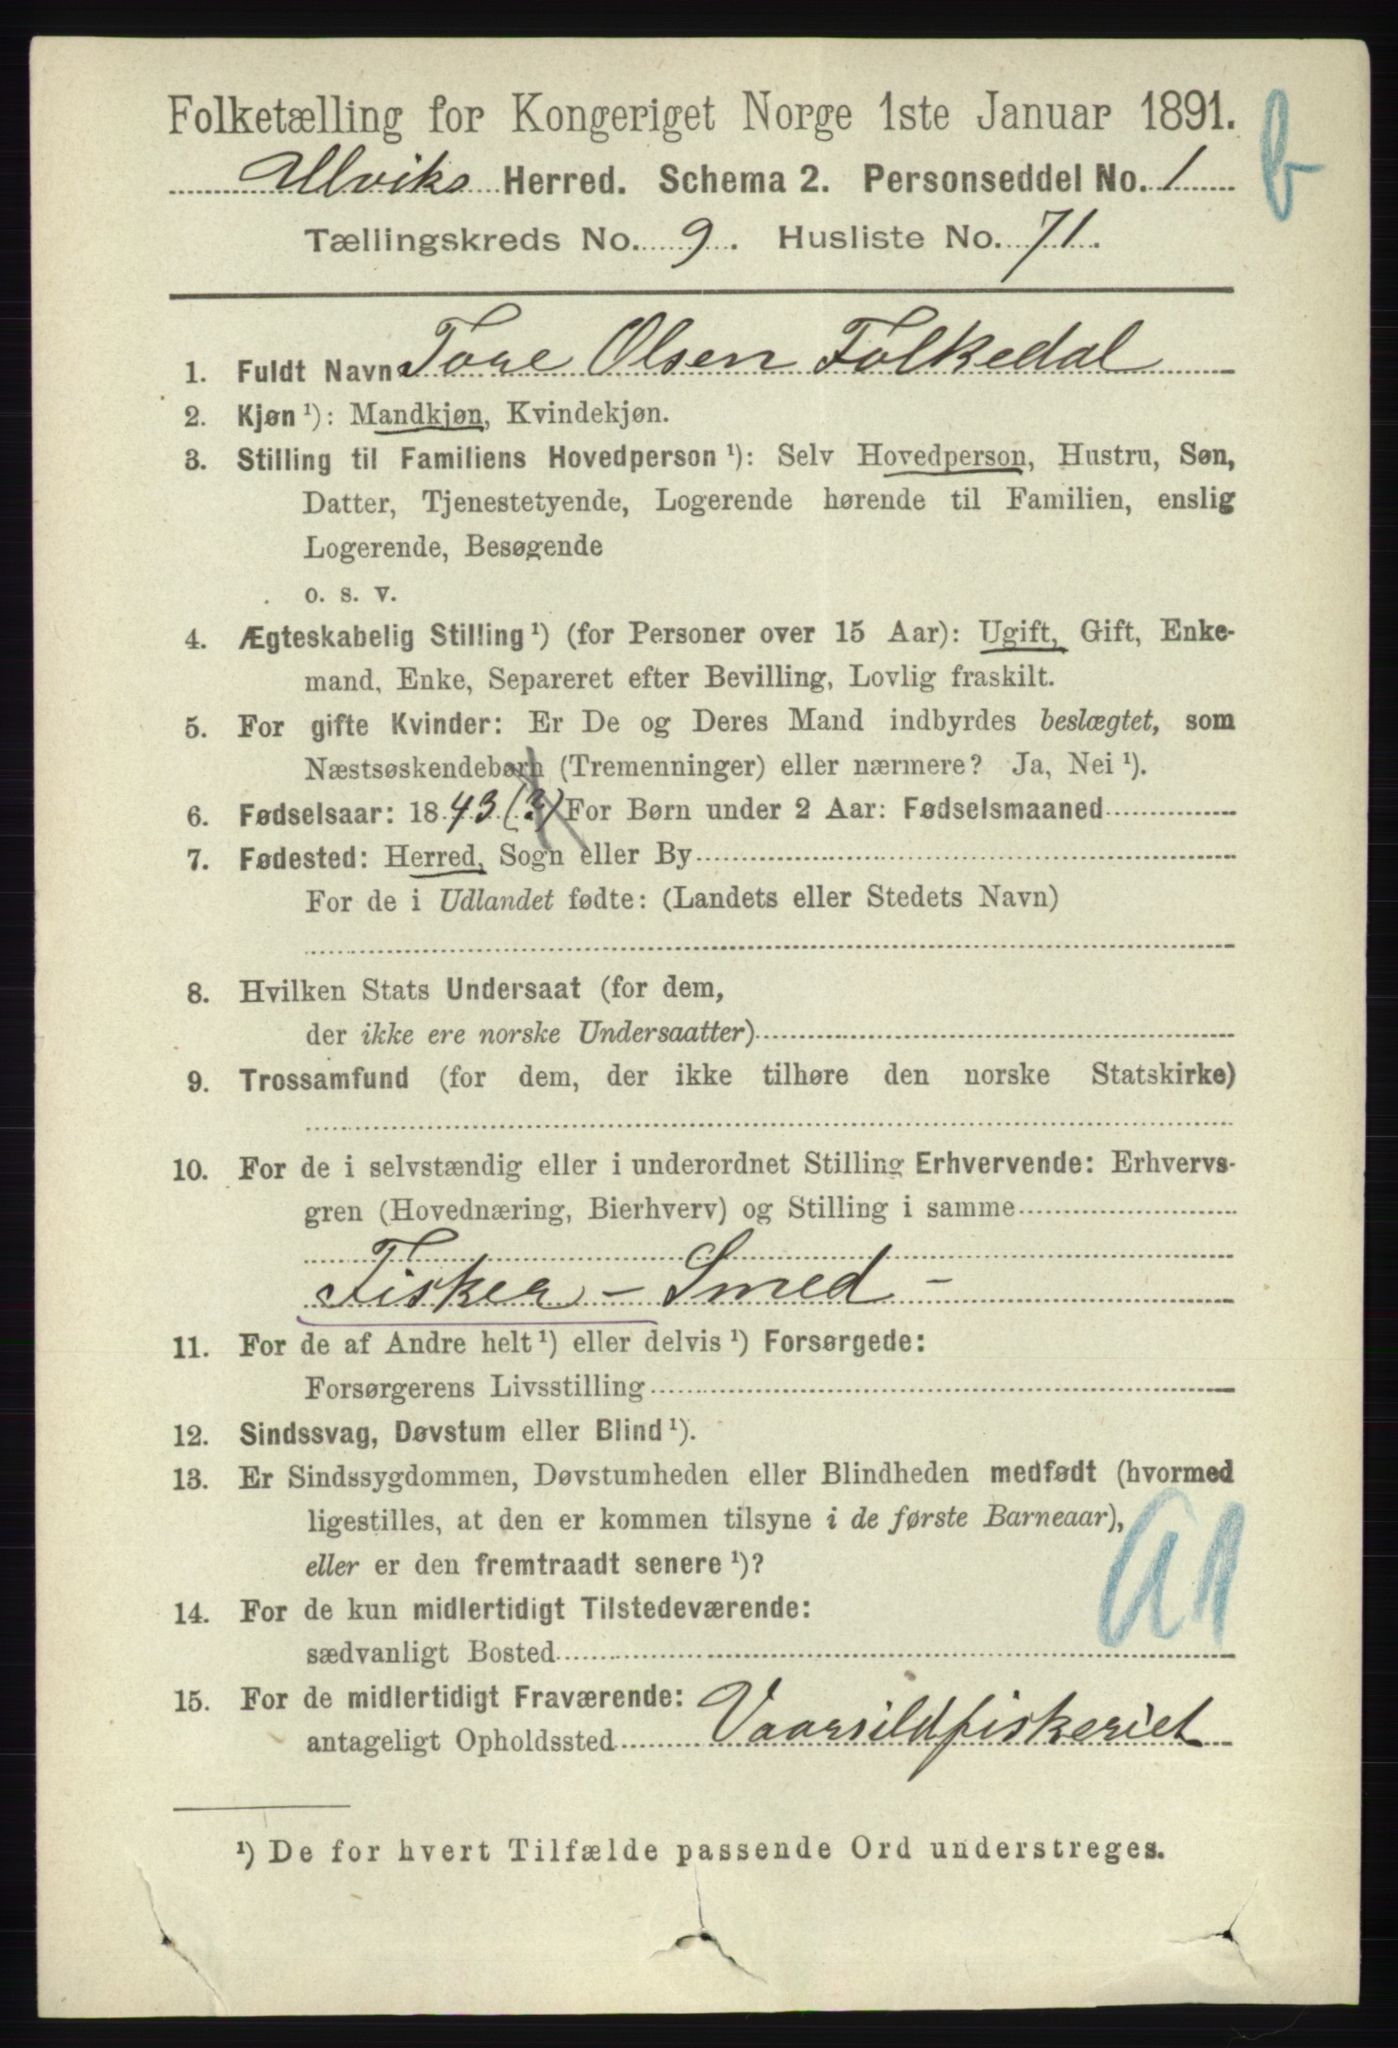 Folketælling for Kongeriget Norge 1ste Januar 1891.
b
Ulviks Herred. Schema 2. Personseddel No. 1
Tællingskreds No. 9. Husliste No. 71.
1. Fuldt Navn Tore Olsen Folkedal
2. Kjøn ¹): Mandkjøn, Kvindekjøn.
3. Stilling til Familiens Hovedperson ¹): Selv Hovedperson, Hustru, Søn,
Datter, Tjenestetyende, Logerende hørende til Familien, enslig
Logerende, Besøgende
o. s. v.
4. Ægteskabelig Stilling ¹) (for Personer over 15 Aar): Ugift, Gift, Enke-
mand, Enke, Separeret efter Bevilling, Lovlig fraskilt.
5. For gifte Kvinder: Er De og Deres Mand indbyrdes beslægtet, som
Næstsøskendebørn (Tremenninger) eller nærmere? Ja, Nei ¹).
6. Fødselsaar: 1843 (?) For Børn under 2 Aar: Fødselsmaaned
7. Fødested: Herred, Sogn eller By
For de i Udlandet fødte: (Landets eller Stedets Navn)
8. Hvilken Stats Undersaat (for dem,
der ikke ere norske Undersaatter)
9. Trossamfund (for dem, der ikke tilhøre den norske Statskirke)
10. For de i selvstændig eller i underordnet Stilling Erhvervende: Erhvervs-
gren (Hovednæring, Bierhverv) og Stilling i samme
Fisker - Smed -
11. For de af Andre helt ¹) eller delvis ¹) Forsørgede:
Forsørgerens Livsstilling
12. Sindssvag, Døvstum eller Blind ¹).
13. Er Sindssygdommen, Døvstumheden eller Blindheden medfødt (hvormed
ligestilles, at den er kommen tilsyne i de første Barneaar),
eller er den fremtraadt senere ¹)?
A1
14. For de kun midlertidigt Tilstedeværende:
sædvanligt Bosted
15. For de midlertidigt Fraværende:
antageligt Opholdssted Vaarsildfiskeriet
¹) De for hvert Tilfælde passende Ord understreges.